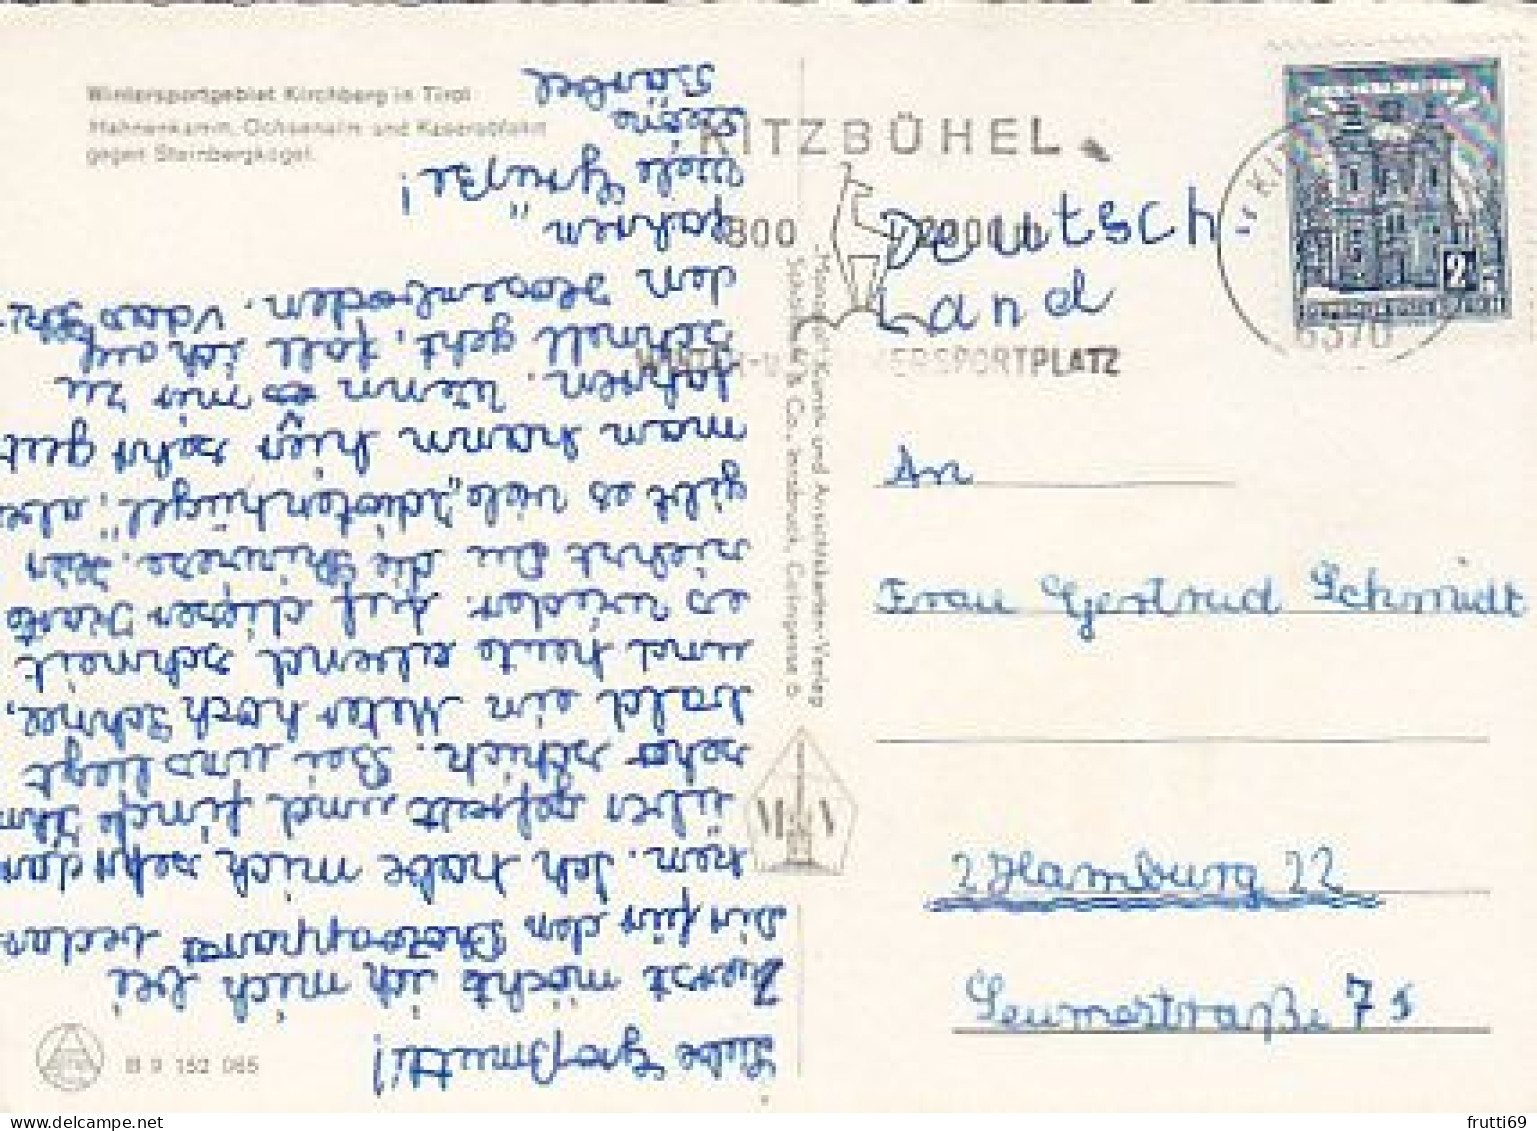 Wintersportgebiet Kirchberg in Tirol
Hahnenkamm, Ochsenalm und Kaserabfahrt
gegen Steinbergkogel.
KITZBÜHEL
800
2000 m
WINTER-U. SOMMERSPORTPLATZ
6370
2
Deutsch
Land
An
Frau Gertrud Schmidt
2 Hamburg 22
Seumestraße
Liebe Großmutti!
Zuerst möchte ich mich bei
Dir für den Photoapparat bedan-
ken. Ich habe mich sehr dar
über gefreut und finde ihn
sehr schick. Bei uns liegt
bald ein Meter hoch Schnee,
und heute abend schneit
es wieder. Auf dieser Karte
siehst Du die Skiwiese. Hier
gibt es viele "Idiotenhügel", also
man kann hier sehr gut
fahren. Wenn es mir zu
schnell geht, fall ich auf
den Hosenboden.
fahren"
Viele Grüße!
Deine
Bärbel
"Monopol" Kunst- und Ansichtskarten-Verlag
Schöllhorn & Co., Innsbruck, Colingasse 6
B 9 152 065
frutti69